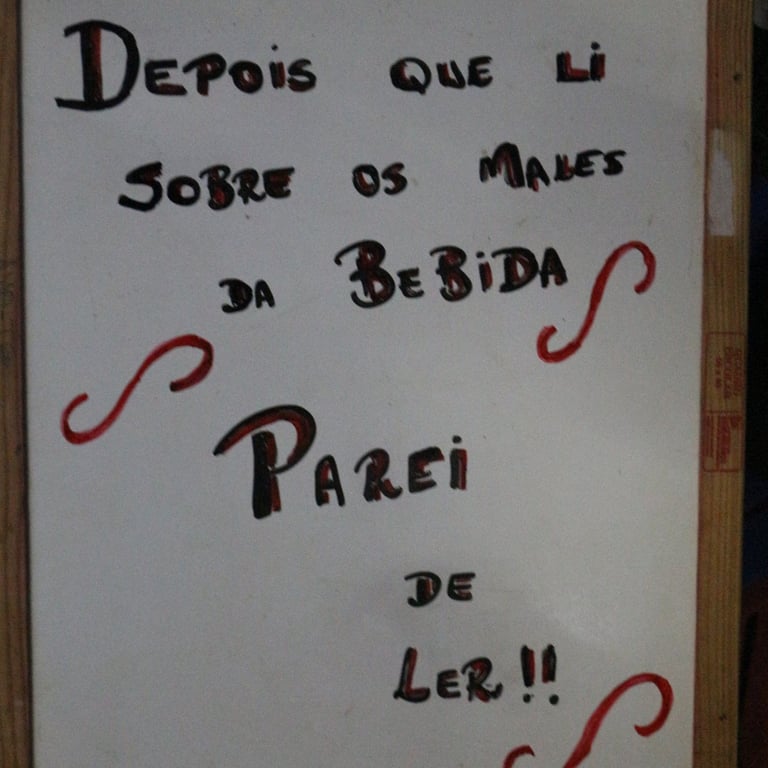 DEPOiS QUE Li
SOBRE OS MALES
DA BEBiDA
PAREi
DE
LER!!